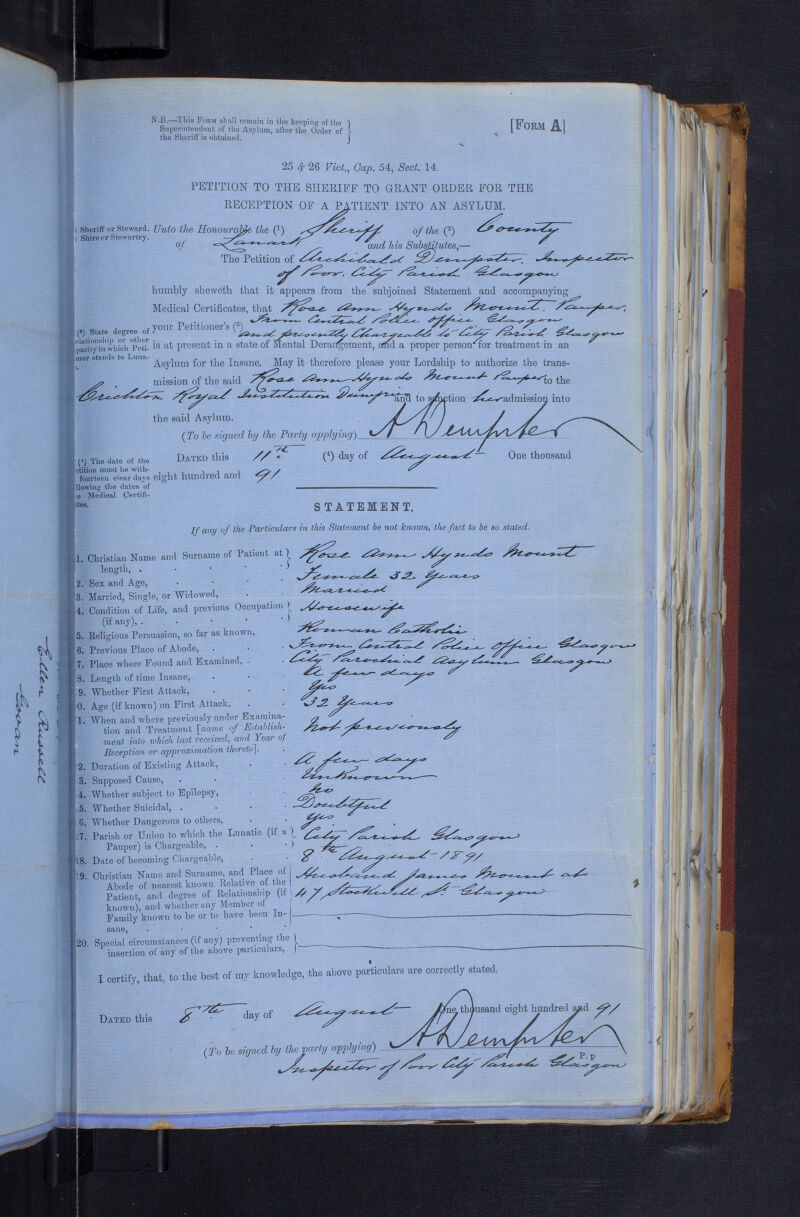 N.B.—This Form shall remain in the keeping of the
Superintendent of the Asylum, after the Order of
the Sheriff is obtained.
[Form A]
25 & 26 Vict., Cap. 54, Sect. 14.
PETITION TO THE SHERIFF TO GRANT ORDER FOR THE
RECEPTION OF A PATIENT INTO AN ASYLUM.
Sheriff or Steward.
Shire or Stewartry.
Unto the Honourable the (1) Sheriff of the (2) County
of Lanark and his Substitutes,—
The Petition of Archibald Dempster. Inspector
of Poor. City Parish Glasgow
humbly sheweth that it appears from the subjoined Statement and accompanying
Medical Certificates, that Rose Ann Hynds Mount. Pauper.
From Central Police Office Glasgow
your Petitioner's (3) and presently Chargeable to City Parish Glasgow
(3) State degree of
elationship or other
pacity in which Peti-
ner stands to Luna-
is at present in a state of Mental Derangement, and a proper person for treatment in an
Asylum for the Insane. May it therefore please your Lordship to authorize the trans-
mission of the said Rose Ann Hynds Mount Pauper to the
Crichton Royal Institution Dumfries and to sanction her admission into
the said Asylum.
(To be signed by the Party applying) A Dempster
Dated this 11th (4) day of August One thousand
eight hundred and 91
(4) The date of the
tition must be with-
fourteen clear days
llowing the dates of
e Medical Certifi-
tes.
STATEMENT.
If any of the Particulars in this Statement be not known, the fact to be so stated.
1. Christian Name and Surname of Patient at length, . Rose Ann Hynds Mount
2. Sex and Age, Female 32 Years
3. Married, Single, or Widowed, Married
4. Condition of Life, and previous Occupation (if any), . Housewife
5. Religious Persuasion, so far as known, Roman Catholic
6. Previous Place of Abode, . From Central Police Office Glasgow
7. Place where Found and Examined, . City Parochial Asylum Glasgow
8. Length of time Insane, A few days
9. Whether First Attack, Yes
0. Age (if known) on First Attack, 32 Years
1. When and where previously under Examina-
tion and Treatment [name of Establish-
ment into which last received, and Year of
Reception or approximation thereto], Not previously
2. Duration of Existing Attack, A few days
3. Supposed Cause, Unknown
4. Whether subject to Epilepsy, No
5. Whether Suicidal, . Doubtful
6. Whether Dangerous to others, Yes
7. Parish or Union to which the Lunatic (if a
Pauper) is Chargeable, . City Parish Glasgow
18. Date of becoming Chargeable, 8th August 1891
19. Christian Name and Surname, and Place of
Abode of nearest known Relative of the
Patient, and degree of Relationship (if
known), and whether any Member of
Family known to be or to have been In-
sane,
Husband James Mount at
47 Stockwell St. Glasgow
20. Special circumstances (if any) preventing the
insertion of any of the above particulars,
I certify, that, to the best of my knowledge, the above particulars are correctly stated.
Dated this 8th day of August One thousand eight hundred and 91
(To be signed by the party applying) A Dempster
P.P
Inspector of Poor City Parish Glasgow
Ellen Russell
Govan